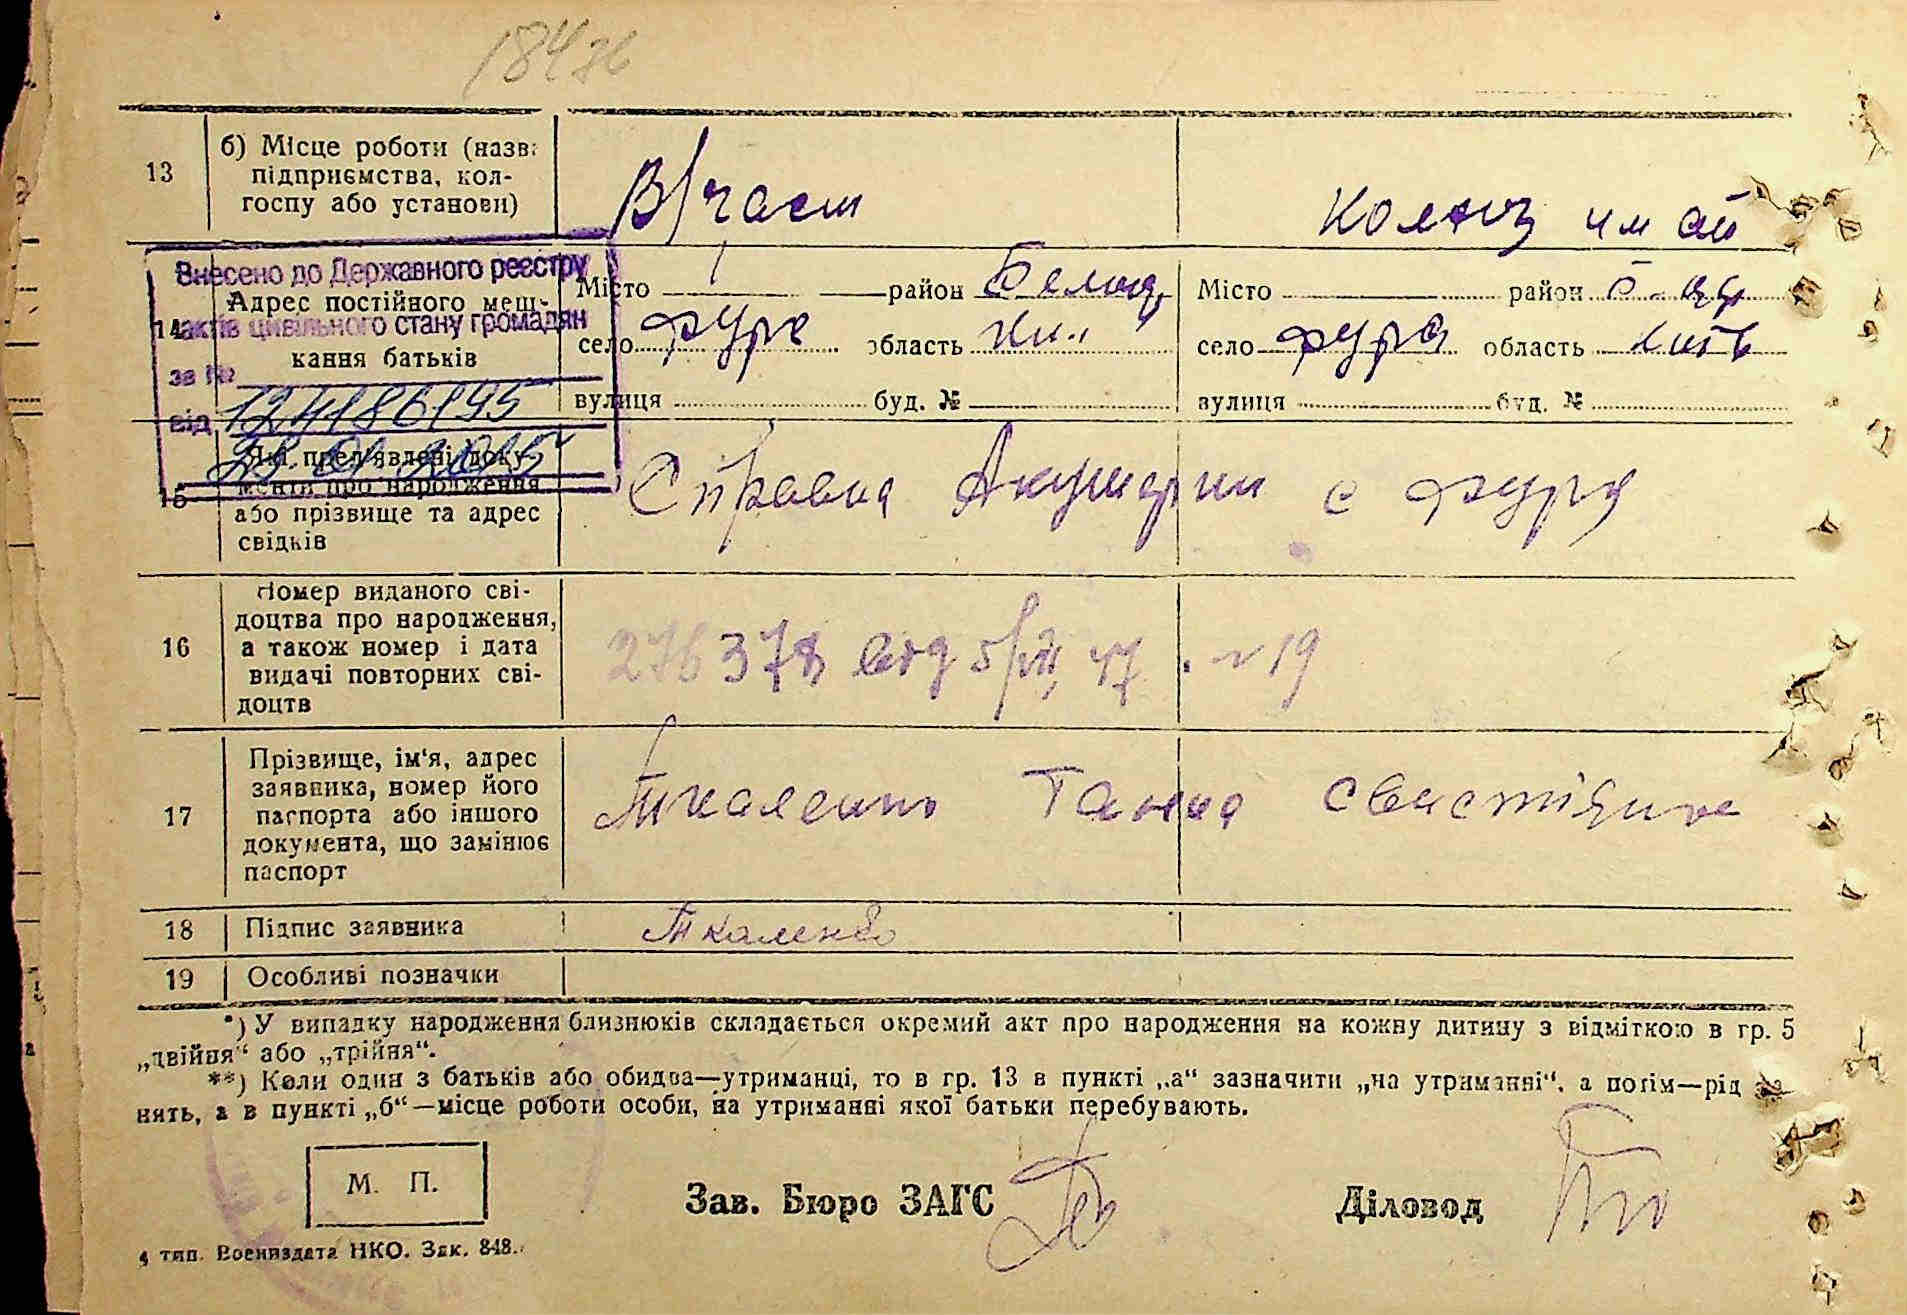 184
13
б) Місце роботи (назв:
підприємства, кол-
госпу або установи)
В/част
Внесено до Державного реєстру
актів цивільного стану громадян
за №
124186195
від
14
Адрес постійного меш-
кання батьків
Місто район
село фура область
вулиця буд. №
Місто район
село фура область
вулиця буд. №
15
Які пред'явлені доку-
менти про народження
або прізвище та адрес
свідків
Справка Акушерки с фура
16
Номер виданого сві-
доцтва про народження,
а також номер і дата
видачі повторних сві-
доцтв
276378 від 5/VII 47 . N 19
17
Прізвище, ім'я, адрес
заявника, номер його
паспорта або іншого
документа, що замінює
паспорт
Ткаленко Ганна
18 Підпис заявника
Ткаленко
19 Особливі позначки
*) У випадку народження близнюків складається окремий акт про народження на кожну дитину з відміткою в гр. 5
„двійня“ або „трійня“.
**) Коли один з батьків або обидва—утриманці, то в гр. 13 в пункті „а“ зазначити „на утриманні“, а потім—рід за-
нять, а в пункті „б“—місце роботи особи, на утриманні якої батьки перебувають.
М. П.
Зав. Бюро ЗАГС
Діловод
4 тип. Воениздата НКО. Зак. 848.